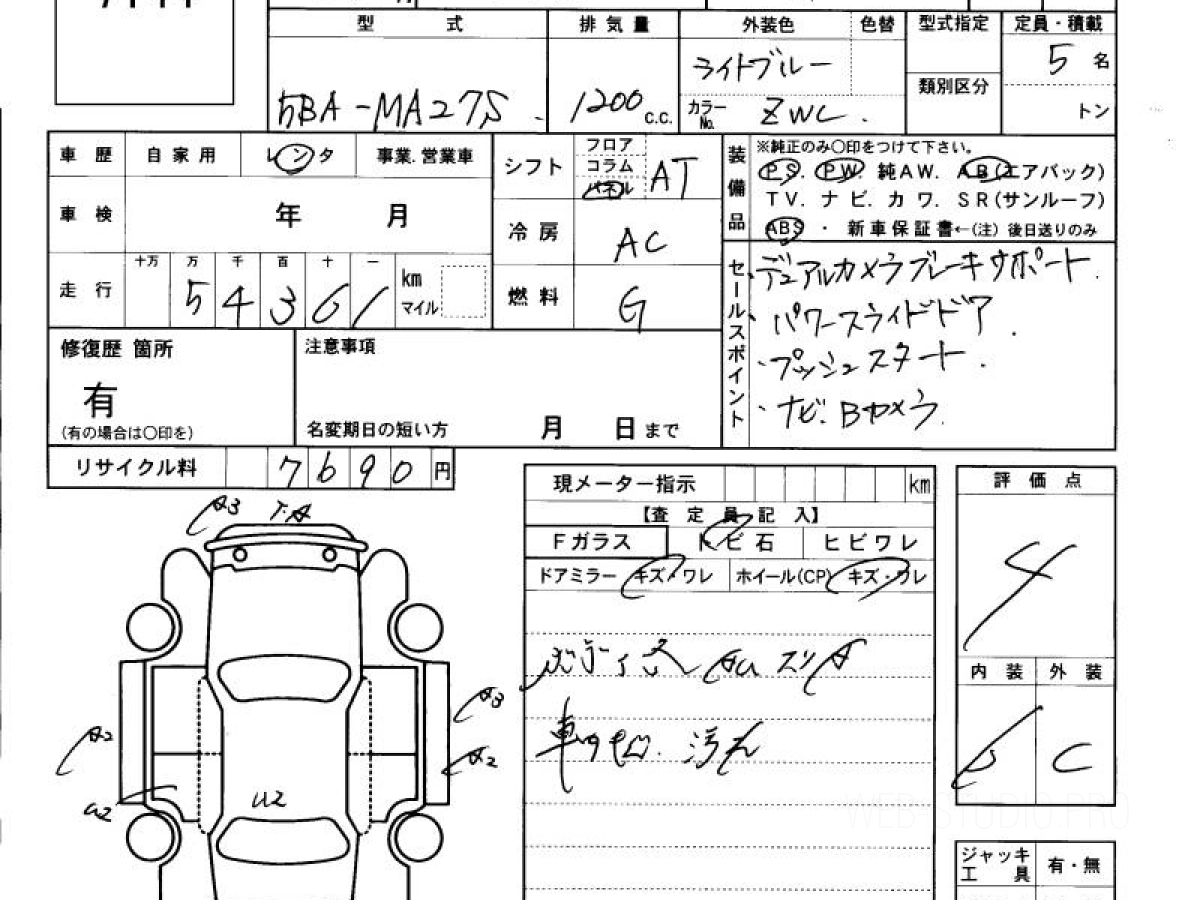 型 式
排 気 量
外装色
色替
型式指定
定員・積載
5BA-MA27S
1200 c.c.
ライトブルー
カラーNo. ZWC
類別区分
5 名
トン
車 歴
自 家 用
レンタ
事業.営業車
車 検
年 月
走 行
十万 万 千 百 十 一
5 4 3 6 1
km
マイル
シフト
フロア
コラム
パネル
AT
冷 房
AC
燃 料
G
装備品
※純正のみ〇印をつけて下さい。
PS. PW 純AW. AB(エアバック)
TV. ナ ビ. カ ワ. SR(サンルーフ)
ABS ・ 新 車 保 証 書←(注) 後日送りのみ
セールスポイント
・デュアルカメラブレーキサポート.
・パワースライドドア.
・プッシュスタート.
・ナビ.Bカメラ.
修復歴 箇所
有
(有の場合は〇印を)
注意事項
名変期日の短い方 月 日 まで
リサイクル料 7 6 9 0 円
現メーター指示 km
【査 定 員 記 入】
Fガラス
トビ石
ヒビワレ
ドアミラー キズ・ワレ
ホイール(CP) キズ・ワレ
汚れ
評 価 点
4
内 装
外 装
C
A3
A3
A2
A2
U2
U2
WEB-STUDIO.PRO
ジャッキ
工 具
有・無